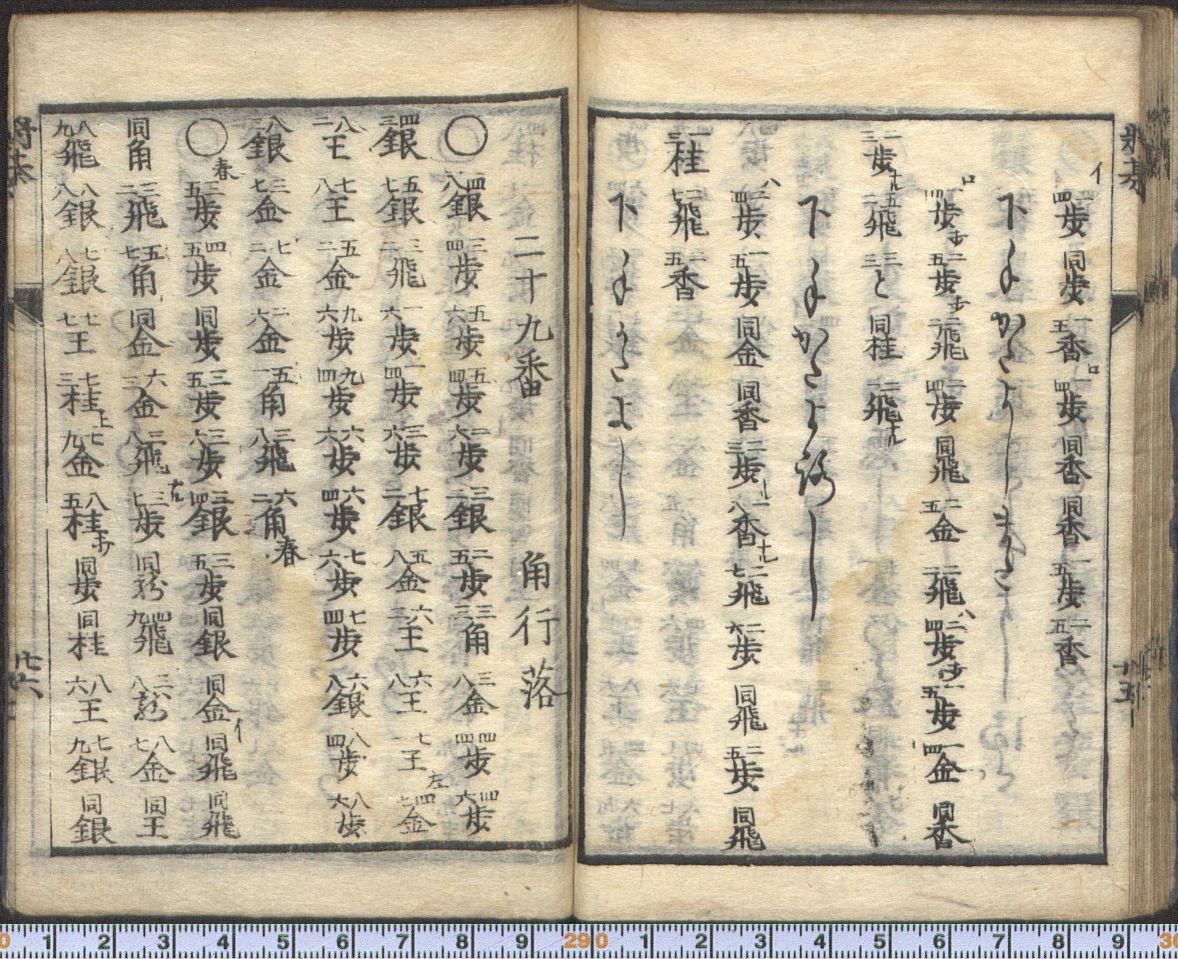 イ 二四歩 同歩 一五香 ロ 一四歩 同香 同香 一五歩 二五香
ロ 一四歩打 二五歩打 二二飛 一四歩 同飛 二五金 二二飛 ハ 二四歩打 一五歩 一四金 同香
下手かたよろし
一三歩成 五二飛 三三と 同桂 二二飛成
ハ 二四歩 一五歩 同金 同香 二三歩成 一八香成 二七飛 二六歩 同飛 二五歩 同飛
二三桂 七二飛 二五香
下手かたよし
廿五
二十九番 角行落
〇 四八銀 三四歩 五六歩 五四歩 二六歩 三二銀 二五歩 三三角 三八金 四四歩 四六歩
四三銀 五七銀 三二飛 一六歩 一四歩 三六歩 七二銀 五八金 六二王 六八王 七一王 四七金左
八二王 七八王 五二金 九六歩 九四歩 六六歩 六四歩 七六歩 七四歩 六八銀 八四歩 八六歩
八三銀 三七金 七二金 二六金 五一角 三八飛 六二角 春
〇 春 三五歩 四五歩 同歩 三五歩 三八歩 三四銀 三五歩 同銀 同金 イ 同飛 同飛
同角 三二飛 五七角成 同金 六二金 二八飛成 三七歩 同龍 四九飛 二八龍 八七金 同王
八九飛 八八銀 七八銀 七七王 七三桂上 七九金 八五桂打 同歩 同桂 八六王 七九銀 同銀
将棋
廿六